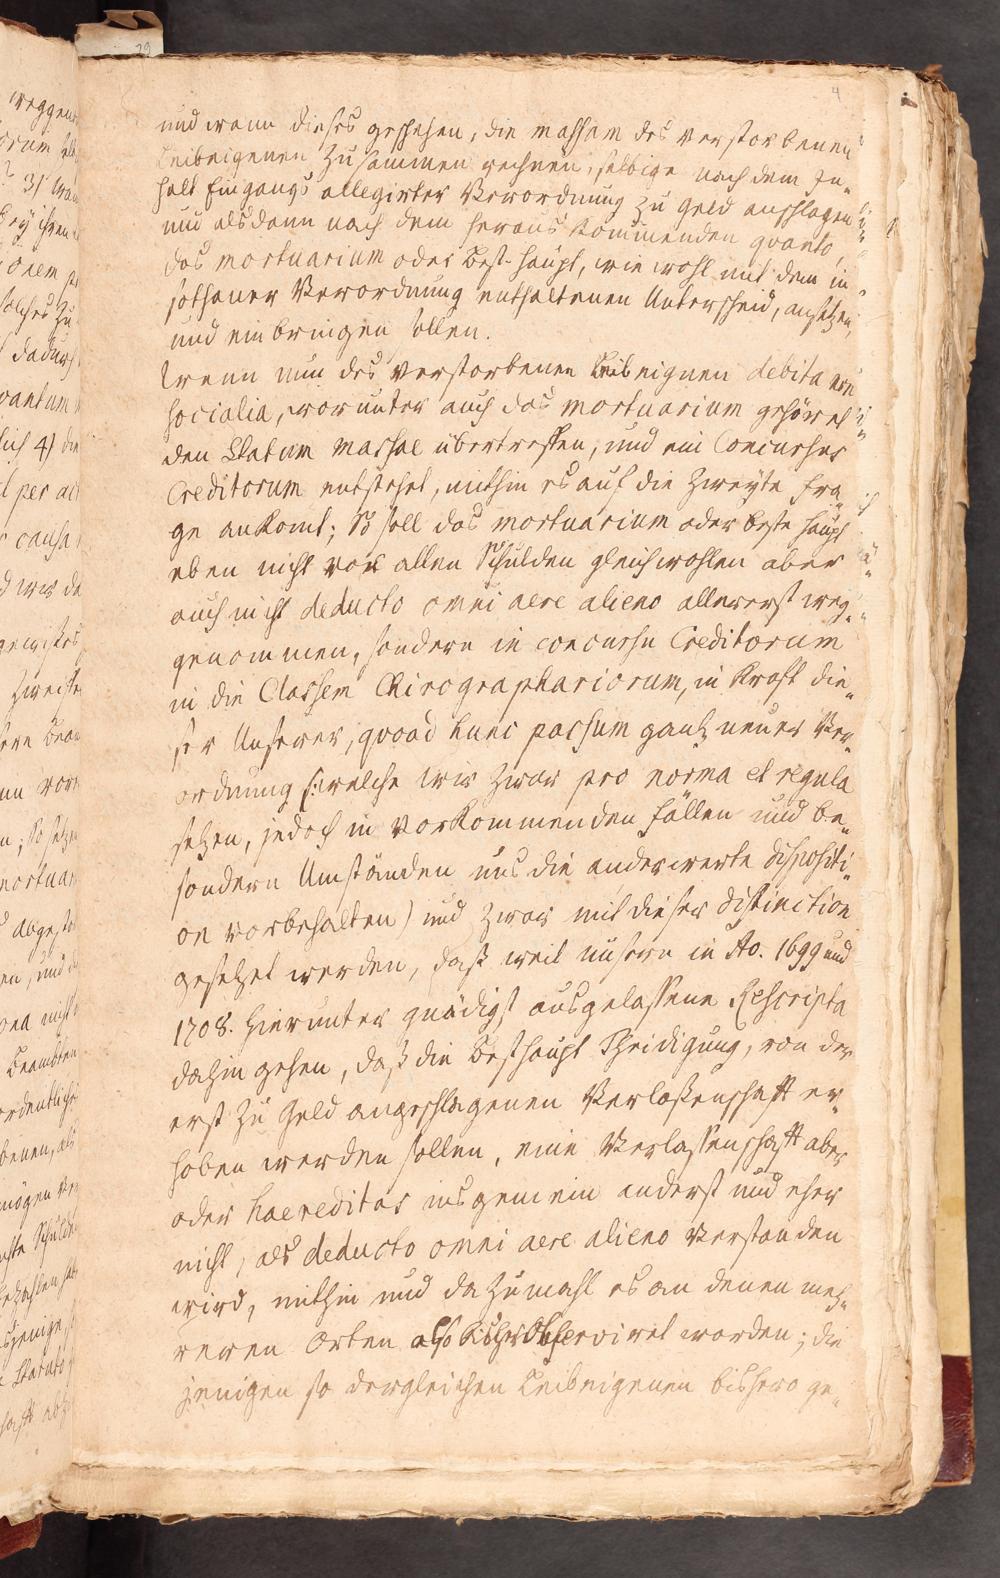 und wann dieses geschehen, die massam des verstorbenen
Leibeigenen zusammen rechnen, selbige nach dem In„
halt Eingangs allegirter Verordnung zu Geld anschlagen
und alsdann nach dem heraus kommenden quanto,
das mortuarium oder Best-haupt, wie wohl mit dem in
sothaner Verordnung enthaltenen Unterscheid, ansetzen,
und einbringen sollen.
Wenn nun des verstorbenen Leibeignen debita
socialia, worunter auch das mortuarium gehöret
den Statum massae übertreffen, und ein Concursus
Creditorum entstehet, mithin es auf die zweyte Fra„
ge ankomt; So soll das mortuarium oder beste Haupt
eben nicht vor allen Schulden gleichwohlen aber
auch nicht deducto omni aere alieno allererst weg„
genommen, sondern in concursu Creditorum
in die Classem Chirographariorum, in Krafft die„
ser Unserer, quoad hunc passum gantz neuer Ver„
ordnung (: welche wir zwar pro norma et regula
setzen, jedoch in vorkommenden Fällen und be„
sondern Umständen uns die anderwerte dispositi„
on vorbehalten) und zwar mit dieser distinction
gesetzet werden, daß weil unsere in Ao. 1699 und
1708. hierunter gnädigst ausgelassene Rescripta
dahin gehen, daß die Besthaupt Theidigung, von der
erst zu Geld angeschlagenen Verlaßenschafft er„
hoben werden sollen, eine Verlassenschafft aber
oder haereditas insgemein anderst und eher
nicht, als deducto omni aere alieno verstanden
wird, mithin und dazumahl es an denen meh„
reren Orten also bisher observiret worden; die
jenigen so dergleichen Leibeigenen bishero ge„